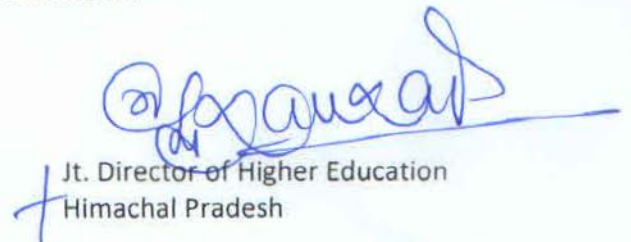 Jt. Director of Higher Education
Himachal Pradesh